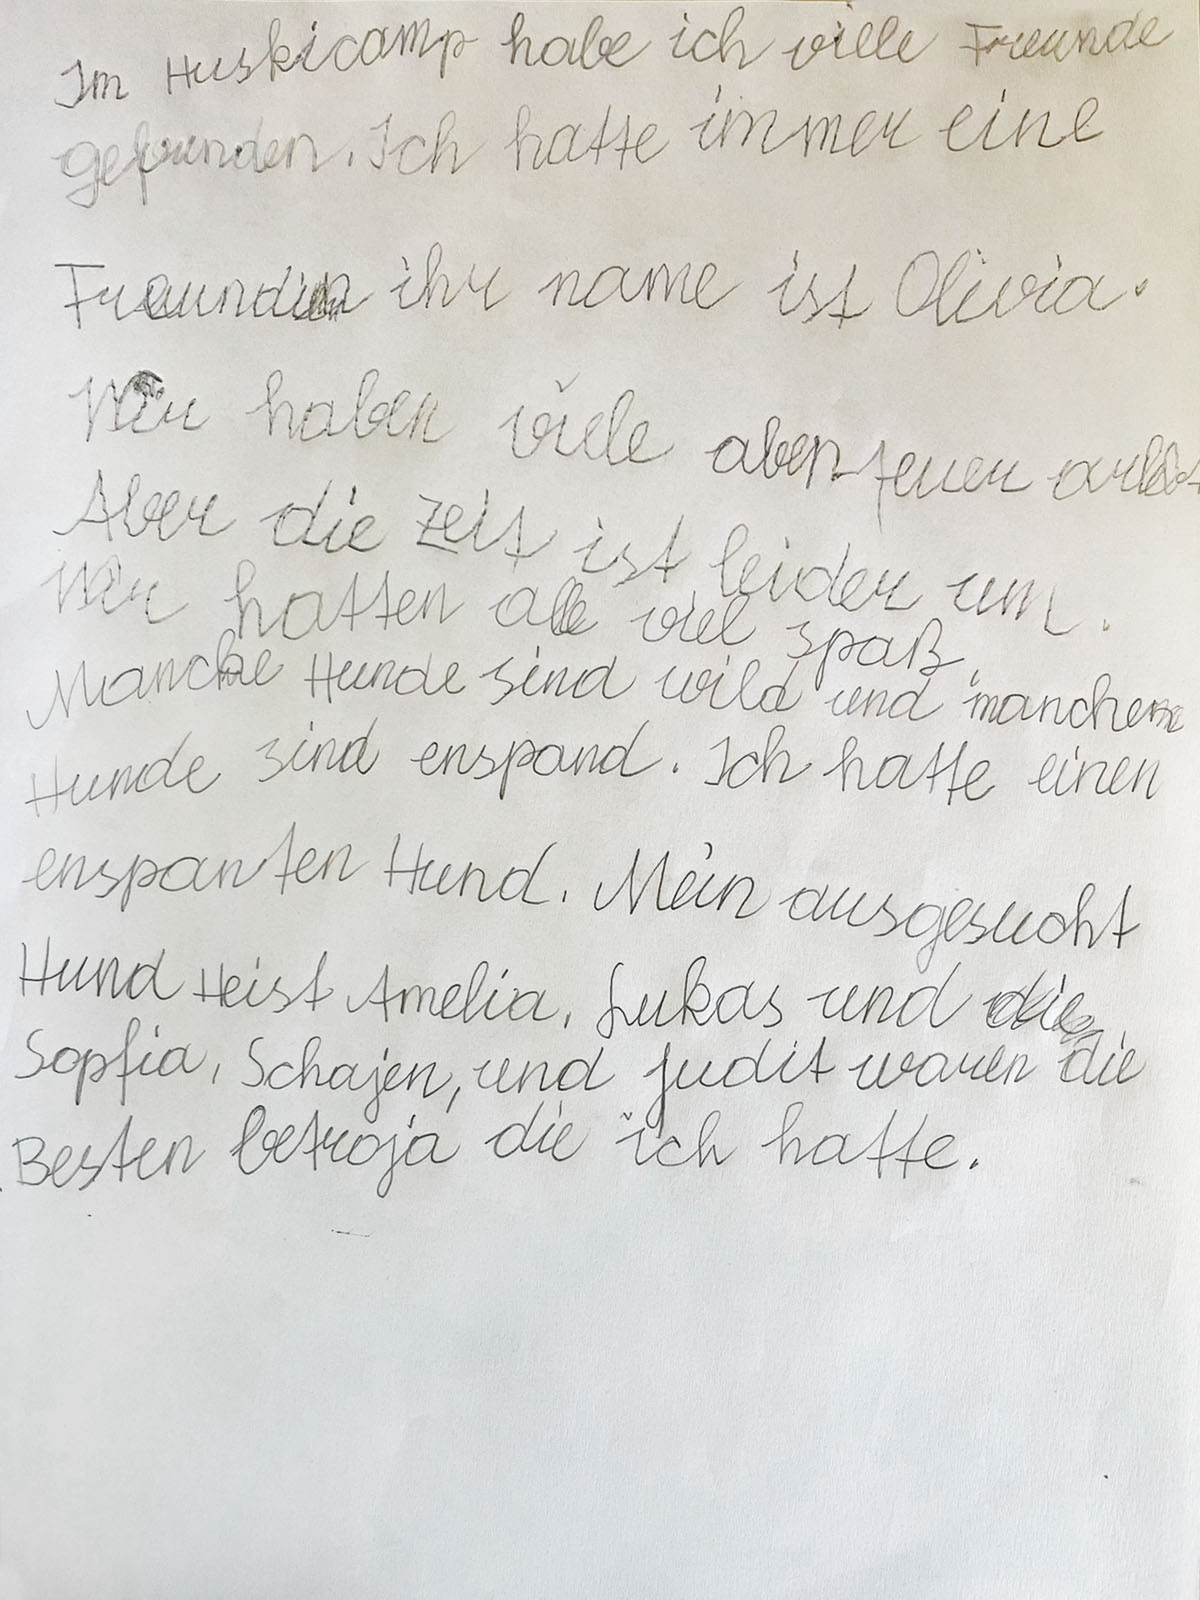 Im Huskicamp habe ich viele Freunde
gefunden. Ich hatte immer eine
Freundin ihr name ist Olivia.
Wir haben viele abenteuer
Aber die Zeit ist leider um.
Wir hatten alle viel spaß.
Manche Hunde sind wild und manche
Hunde sind enspand. Ich hatte einen
enspanten Hund. Mein ausgesucht
Hund Heist Amelia, Lukas und
Sopfia, Schajen, und Judit waren die
Besten betroja die ich hatte.